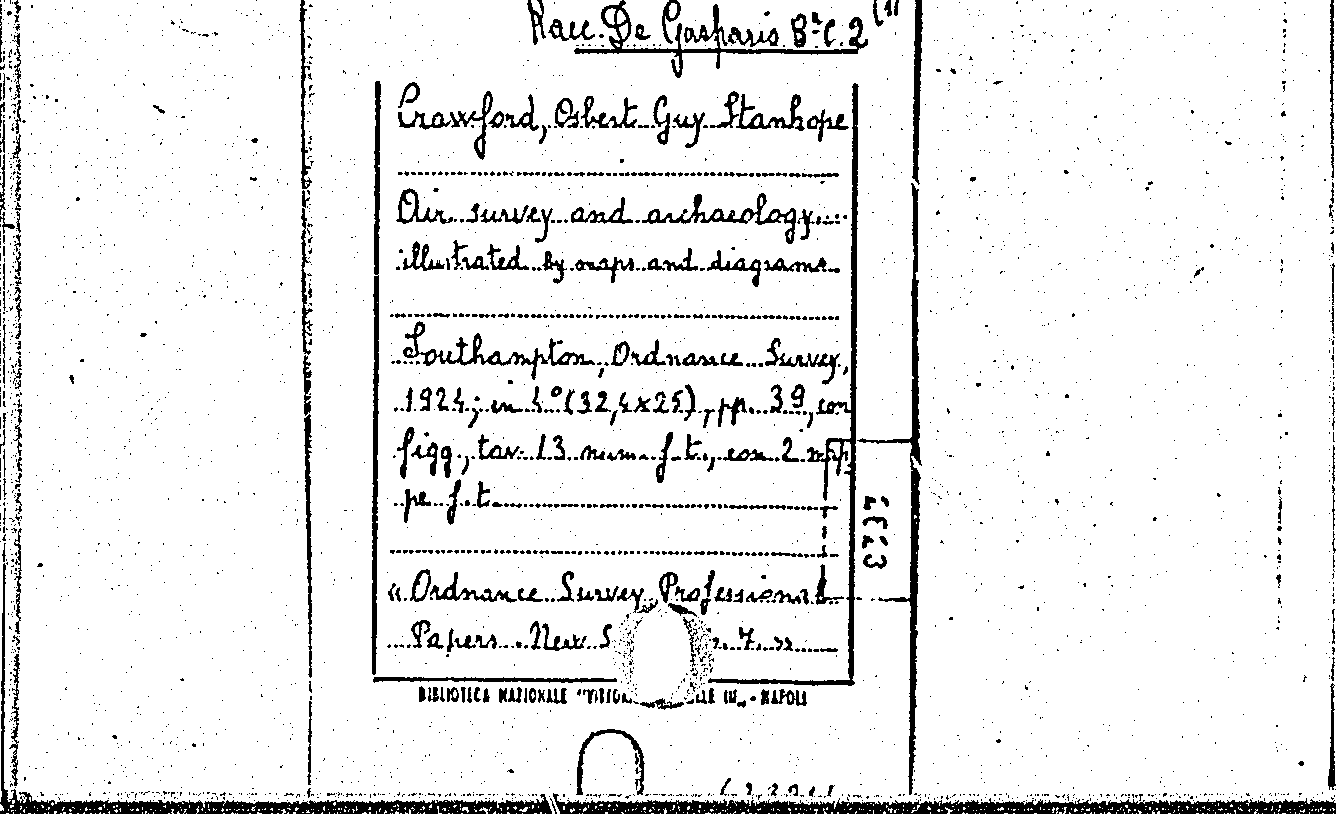 Racc. De Gasparis Bª C. 2 (1)
Crawford, Osbert Guy Stanhope
Air survey and archaeology...
illustrated by maps and diagrams.
Southampton, Ordnance Survey,
1924; in 4° (32,4x25), pp. 39, con
figg., tav. 13 num. f. t., con 2 map
pe f. t.
« Ordnance Survey Professional
Papers. New S 7. »
BIBLIOTECA NAZIONALE - NAPOLI